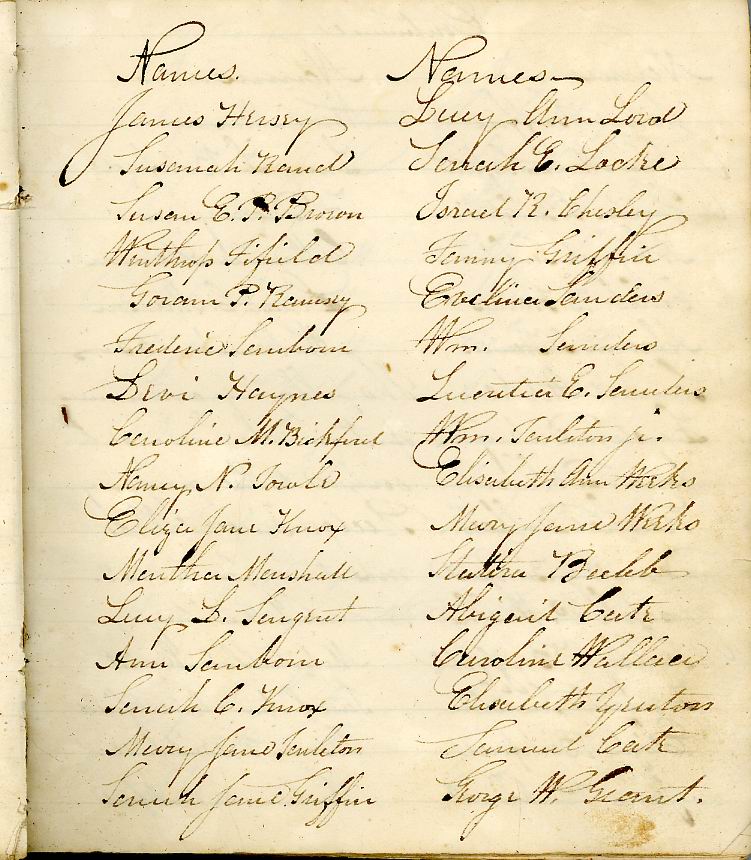 Names.
James Hersey
Susanah Rand
Susan E. P. Brown
Winthrop Fifield
Goram P. Ramsey
Frederic Sanborn
Levi Haynes
Caroline M. Bickford
Nancy N. Towle
Eliza Jane Knox
Martha Marshall
Lucy L. Sargent
Ann Sanborn
Sarah C. Knox
Mary Jane Tarleton
Sarah Jane Griffin
Names
Lucy Ann Lord
Sarah E. Locke
Israel R. Chesley
Fanny Griffin
Eveline Sanders
Wm. Sanders
Lucretia E. Sanders
Wm. Tarleton jr.
Elisabeth Ann Weeks
Mary Jane Weeks
Statira Babb
Abigail Cate
Caroline Wallace
Elisabeth Yeaton
Samuel Cate
George W. Grant.